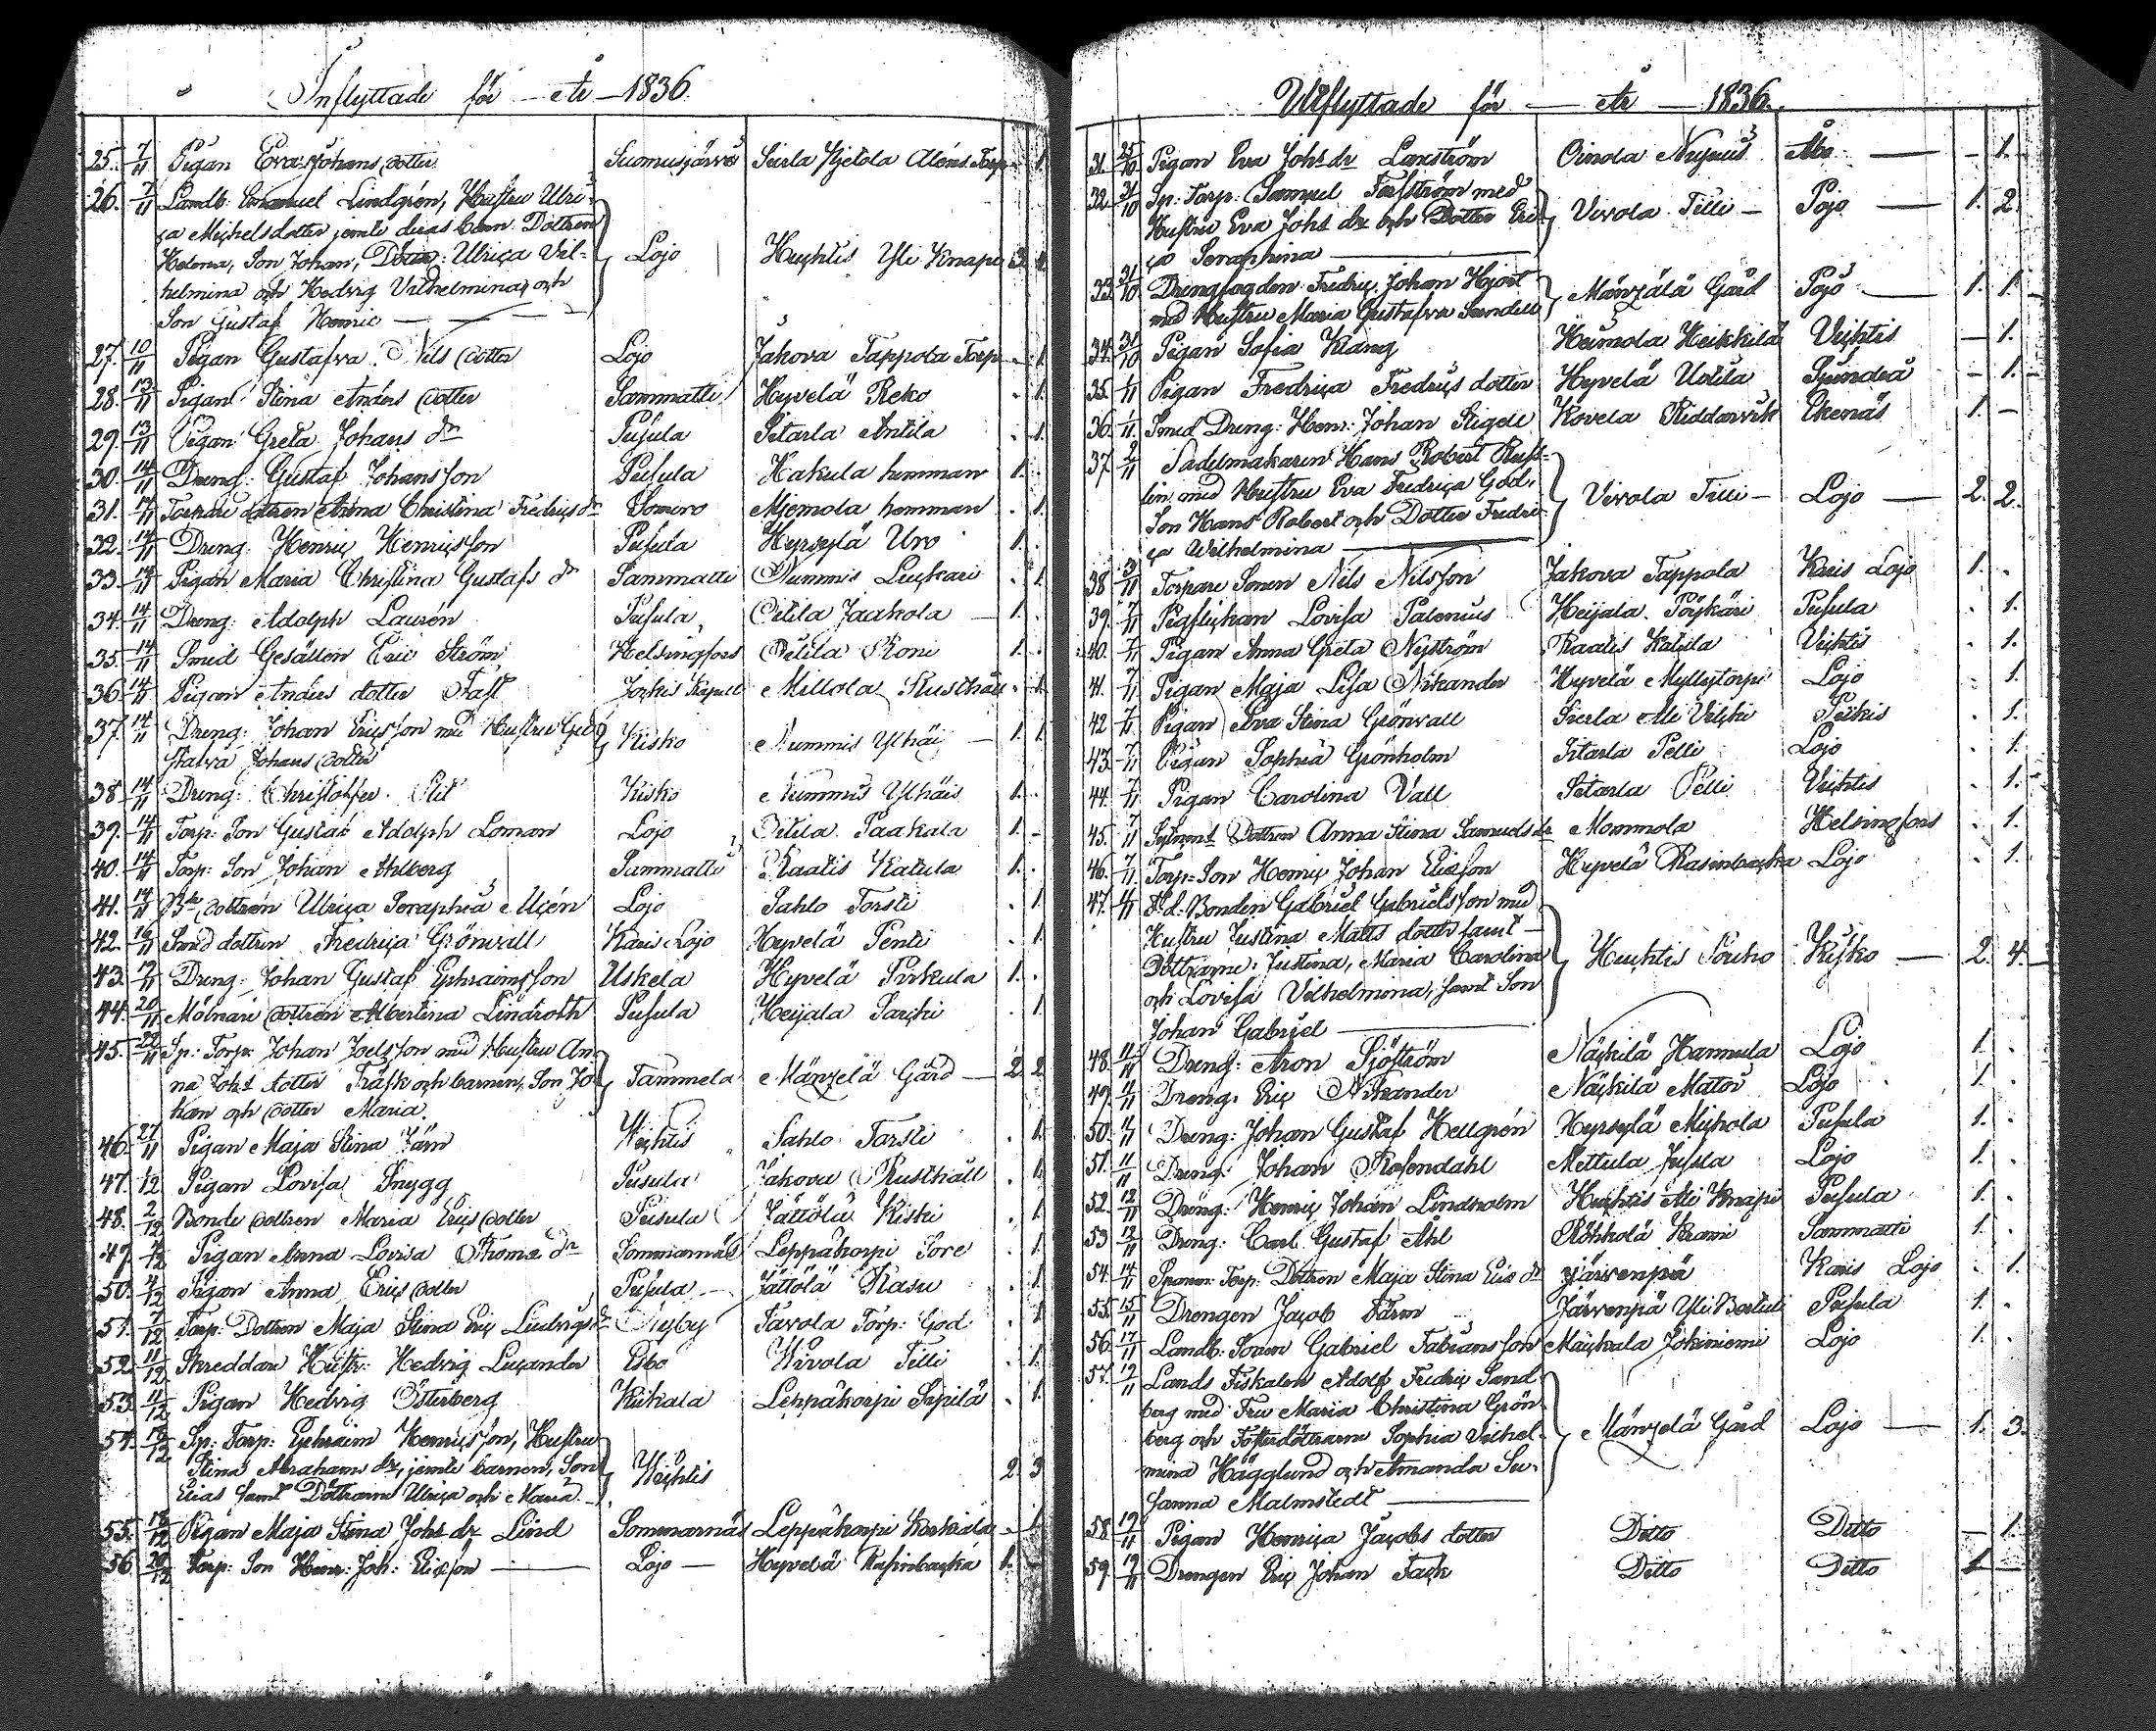 Inflyttade för år 1836.
25. 7/11 Pigan Eva Johans dotter Suomusjärvi Sierla Torp 1.
26. 7/11 Landb. Emanuel Lindgrén, Hustru Ulri-
ca Michelsdotter jemte deras barn Dottren
Helena, Son Johan, Dottr: Ulrica Vil- Lojo Huhtis Yli Knapi 3. 4.
helmina och Hedvig Vilhelmina, och
Son Gustaf Henric
27. 10/11 Pigan Gustafva Nils dotter Lojo Jakova Tappola Torp 1.
28. 13/11 Pigan Stina Anders dotter Sammatti Hyvelä Reko 1.
29. 13/11 Pigan Greta Johans dr Pusula Sitarla Antila 1.
30. 14/11 Dreng: Gustaf Johansson Pusula Hakula hemman 1.
31. 14/11 Torpare dottren Anna Christina Fredrics dr Somero Mjemola hemman 1.
32. 14/11 Dreng: Henric Henricsson Pusula Hyrsylä Uro 1.
33. 14/11 Pigan Maria Christina Gustafs dr Sammatti Nummis Luskari 1.
34. 14/11 Dreng: Adolph Laurén Pusula Oitila Jaakola 1.
35. 14/11 Smed Gesällen Eric Ström Helsingfors Oitila Roni 1.
36. 14/11 Pigan Anders dotter Fast Millola Rusthåll 1.
37. 14/11 Dreng: Johan Ericsson med Hustru Gu-
stafva Johans dotter Kisko Nummis Ylhäis 1. 1.
38. 14/11 Dreng: Christoffer Kisko Nummis Ylhäis 1.
39. 14/11 Torp: Son Gustaf Adolph Loman Lojo Oitila Paakala 1.
40. 14/11 Torp: Son Johan Ahlberg Sammatti Raatis Katula 1.
41. 14/11 dottren Ulrica Seraphia Lojo Sahlo Torsti 1.
42. 16/11 Smed dottren Fredrica Grönvall Karis Lojo Hyvelä Penti 1.
43. 17/11 Dreng: Johan Gustaf Ephraimsson Uskela Hyvelä Pirkula 1.
44. 20/11 Mölnare dottren Albertina Lindroth Pusula Heijala Parski 1.
45. 22/11 Sp: Torp: Johan Joelsson med Hustru An-
na Johs dotter Träsk och barnen, Son Jo- Tammela Mänzelä Gård 2. 2.
han och dotter Maria.
46. 27/11 Pigan Maja Stina Järn Wichtis Sahlo Torsti 1.
47. 1/12 Pigan Lovisa Snygg Pusula Jakova Rusthåll 1.
48. 2/12 Bonde dottren Maria Erics dotter Pusula Jättölä Kiski 1.
49. 4/12 Pigan Anna Lovisa Thoma dr Sommarnäs Leppäkorpi Sore 1.
50. 4/12 Pigan Anna Erics dotter Pusula Jättölä Rasu 1.
51. 7/12 Torp: Dottren Maja Stina Eric Ludvigs dr Nyby Tavola Torp: God 1.
52. 11/12 Skreddare Hustr: Hedvig Lucander Esbo Wirola Tilli 1.
53. 11/12 Pigan Hedvig Österberg Kiikala Leppäkorpi Sepilä 1.
54. 18/12 Sp: Torp: Ephraim Henricsson, Hustru
Stina Abrahams dr, jemte barnen, Son Wichtis 2. 3.
Elias samt Döttrarne Ulrica och Maria
55. 18/12 Pigan Maja Stina Johs dr Lind Sommarnäs Leppäkorpi Korkiala 1.
56. 29/12 Torp: Son Henr: Joh: Ericsson Lojo Hyvelä Rasinbacka 1.
Utflyttade för år 1836.
31. 25/10 Pigan Eva Johs dr Lanström Oinola Nygård Åbo 1.
32. 31/10 Sp: Torp: Samuel Forsström med
Hustru Eva Johs dr och Dotter Eri- Virola Tilli Pojo 1. 2.
ca Seraphina
33. 31/10 Drengfogden Fredric Johan Hjort Mänzälä Gård Pojo 1. 1.
med Hustru Maria Gustafva Sundell
34. 31/10 Pigan Sofia Klang Heimola Heikkilä Vichtis 1.
35. 1/11 Pigan Fredrica Fredrics dotter Hyvelä Uotila Sjundeå 1.
36. 1/11 Smed Dreng: Henr: Johan Stigell Kovela Riddarvik Ekenäs 1.
37. 2/11 Sadelmakaren Hans Robert Rust-
lin med Hustru Eva Fredrica God, Virola Tilli Lojo 2. 2.
Son Hans Robert och Dotter Fredri-
ca Wilhelmina
38. 3/11 Torpare Sonen Nils Nilsson Jakova Tappola Karis Lojo 1.
39. 7/11 Pigflickan Lovisa Palenius Heijala Pöykäri Pusula 1.
40. 7/11 Pigan Anna Greta Nyström Raatis Katula Vichtis 1.
41. 7/11 Pigan Maja Lisa Nikander Hyvelä Myllytorpi Lojo 1.
42. 7/11 Pigan Eva Stina Grönvall Sierla Ali Pikis 1.
43. 7/11 Pigan Sophia Grönholm Sitarla Pelli Lojo 1.
44. 7/11 Pigan Carolina Vall Sitarla Pelli Vichtis 1.
45. 7/11 Dottren Anna Stina Samuels dr Mommola Helsingfors 1.
46. 7/11 Torp: Son Henric Johan Ericsson Hyvelä Rasinbacka Lojo 1.
47. 11/11 F.d. Bonden Gabriel Gabrielsson med
Hustru Justina Matts dotter samt
Döttrarne: Justina, Maria Carolina Huhtis Souho Kisko 2. 4.
och Lovisa Vilhelmina, samt Son
Johan Gabriel
48. 11/11 Dreng: Aron Sjöström Näckilä Hannula Lojo 1.
49. 11/11 Dreng: Eric Nikander Näckilä Mator Lojo 1.
50. 11/11 Dreng: Johan Gustaf Hellgrén Hyrsylä Mickola Pusula 1.
51. 11/11 Dreng: Johan Rosendahl Mettula Jussla Lojo 1.
52. 12/11 Dreng: Henric Johan Lindholm Huhtis Ali Knapi Pusula 1.
53. 12/11 Dreng: Carl Gustaf Ahl Röhkölä Krami Sammatti 1.
54. 14/11 Torp: Dottren Maja Stina Eric dr Järvenpä Karis Lojo 1.
55. 15/11 Drengen Jacob Färm Järvenpä Yli Bertuli Pusula 1.
56. 17/11 Landb: Sonen Gabriel Fabiansson Mäckala Jokiniemi Lojo 1.
57. 19/11 Lands Fiskalen Adolf Fredric Sand-
berg med Fru Maria Christina Grön-
berg och Fosterdöttrarne Sophia Vilhel- Mänzelä Gård Lojo 1. 3.
mina Hägglund och Amanda Su-
sanna Malmstedt
58. 19/11 Pigan Henrica Jacobs dotter Ditto Ditto 1.
59. 19/11 Drengen Eric Johan Tack Ditto Ditto 1.